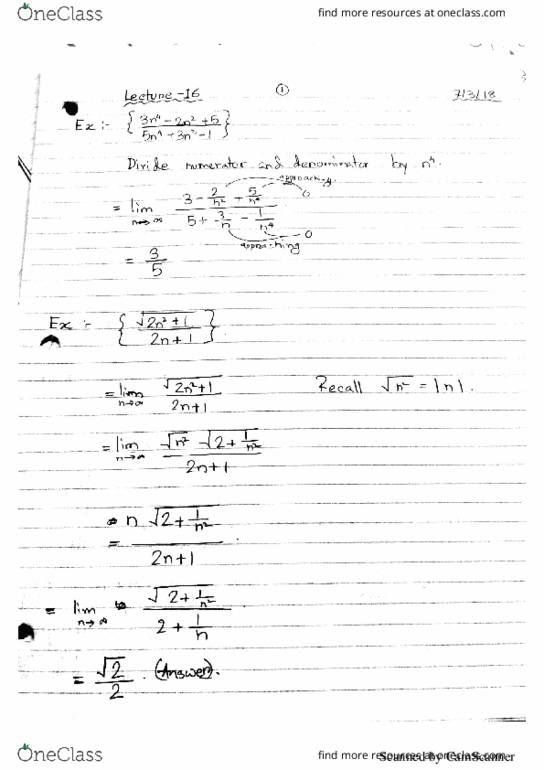 OneClass find more resources at oneclass.com
Lecture-16 ① 7/3/18
Ex :- { (3n⁴ - 2n² + 5) / (5n⁴ + 3n³ - 1) }
Divide numerator and denominator by n⁴.
approaching 0
= lim n→∞ (3 - 2/n² + 5/n⁴) / (5 + 3/n - 1/n⁴)
approaching 0
= 3/5
Ex :- { √(2n² + 1) / (2n + 1) }
= lim n→∞ √(2n²+1) / (2n+1) Recall √n² = |n|.
= lim n→∞ √n² √(2 + 1/n²) / (2n+1)
= n √(2 + 1/n²) / (2n+1)
= lim n→∞ √(2 + 1/n²) / (2 + 1/n)
= √2/2 . (Answer).
OneClass find more resources at oneclass.com
Scanned by CamScanner